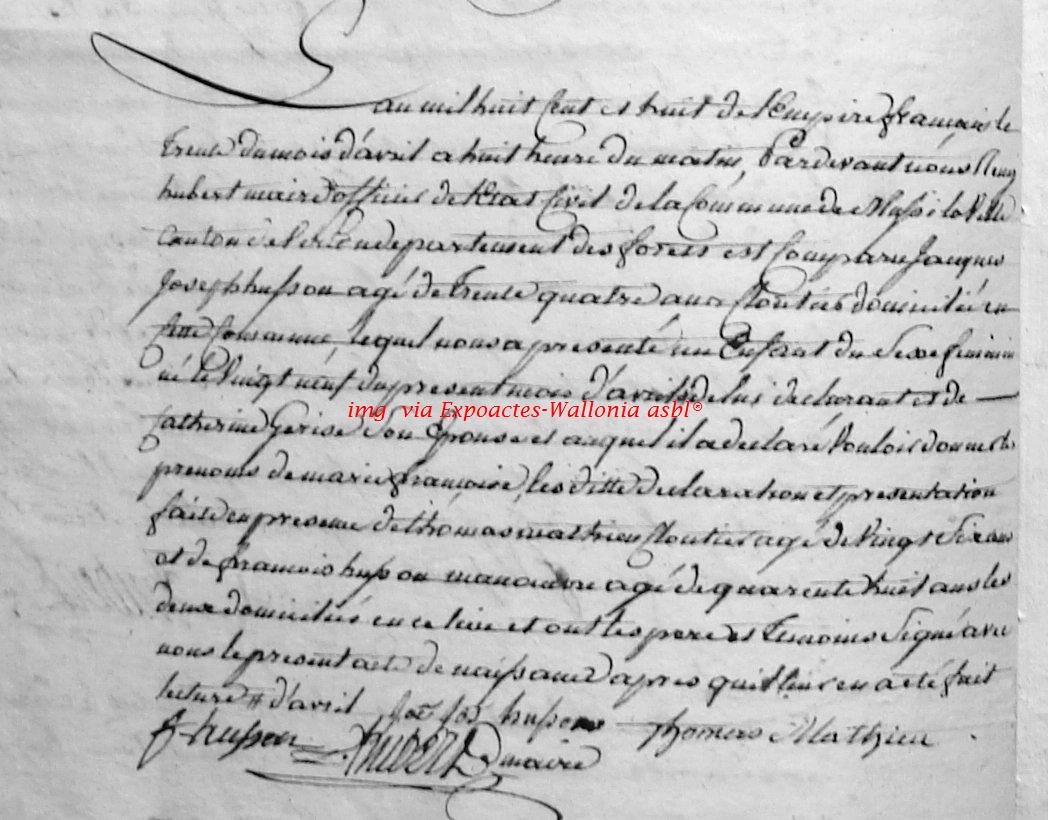 L'an mil huit cent et huit de l'Empire français le
trente du mois d'avril a huit heure du matin, Pardevant nous
hubert maire officier de l'Etat Civil de la Commune de Mussi la Ville
canton de Virton departement des forets est Comparu Jacques
Joseph husson agé de trente quatre ans Cloutier domicilié en
cette Commune, lequel nous a presenté un Enfant du Sexe feminin
né le Vingt neuf du present mois d'avril de lui declarant et de
img. via Expoactes-Wallonia asbl®
Catherine Gerise Son Epouse et auquel il a declaré Vouloir donner les
prenoms de marie françoise, les ditte declaration et presentation
faite en presence de thomas mathieu Cloutier agé de Vingt Six ans
et de francois husson manoeuvre agé de quarente huit ans les
deux domiciliés en ce lieu et ont les pere et temoins Signé avec
nous le present acte de naissance apres qu'il leur en a eté fait
lecture # d'avril Jac Jos husson thomas Mathieu
f husson HUBERT maire